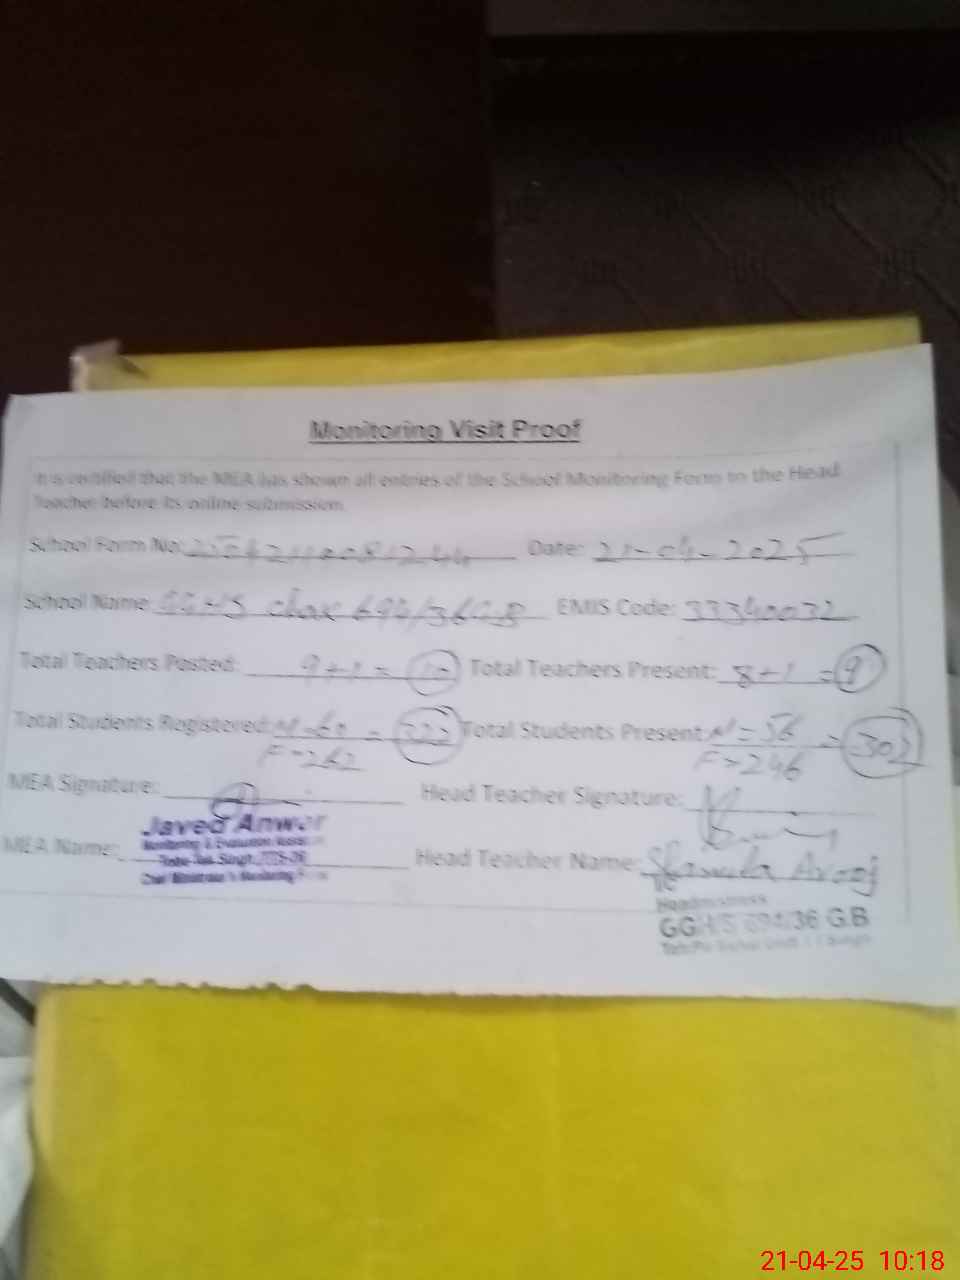 Monitoring Visit Proof
It is certified that the MEA has shown all entries of the School Monitoring Form to the Head
Teacher before its online submission.
School Form No: Date: 21-04-2025
School Name: GGHS chak 694/36GB EMIS Code: 33340032
Total Teachers Posted: 9+1=10 Total Teachers Present: 8+1=9
Total Students Registered: M=60 = 322 Total Students Present: M=56 = 302
F=262 F=246
MEA Signature: Head Teacher Signature:
Javed Anwar
Monitoring & Evaluation
MEA Name: Head Teacher Name:
Chief Minister's Monitoring
Headmistress
GGH/S 694/36 G.B
21-04-25 10:18